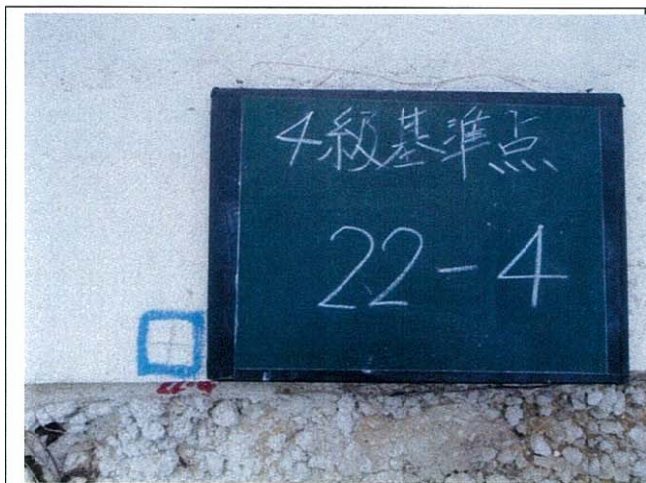 4級基準点
22-4